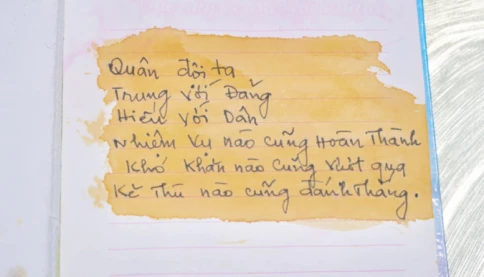 Quân đội ta
Trung với Đảng
Hiếu với Dân
Nhiệm vụ nào cũng Hoàn Thành
Khó Khăn nào cũng vượt qua
Kẻ Thù nào cũng đánh Thắng.